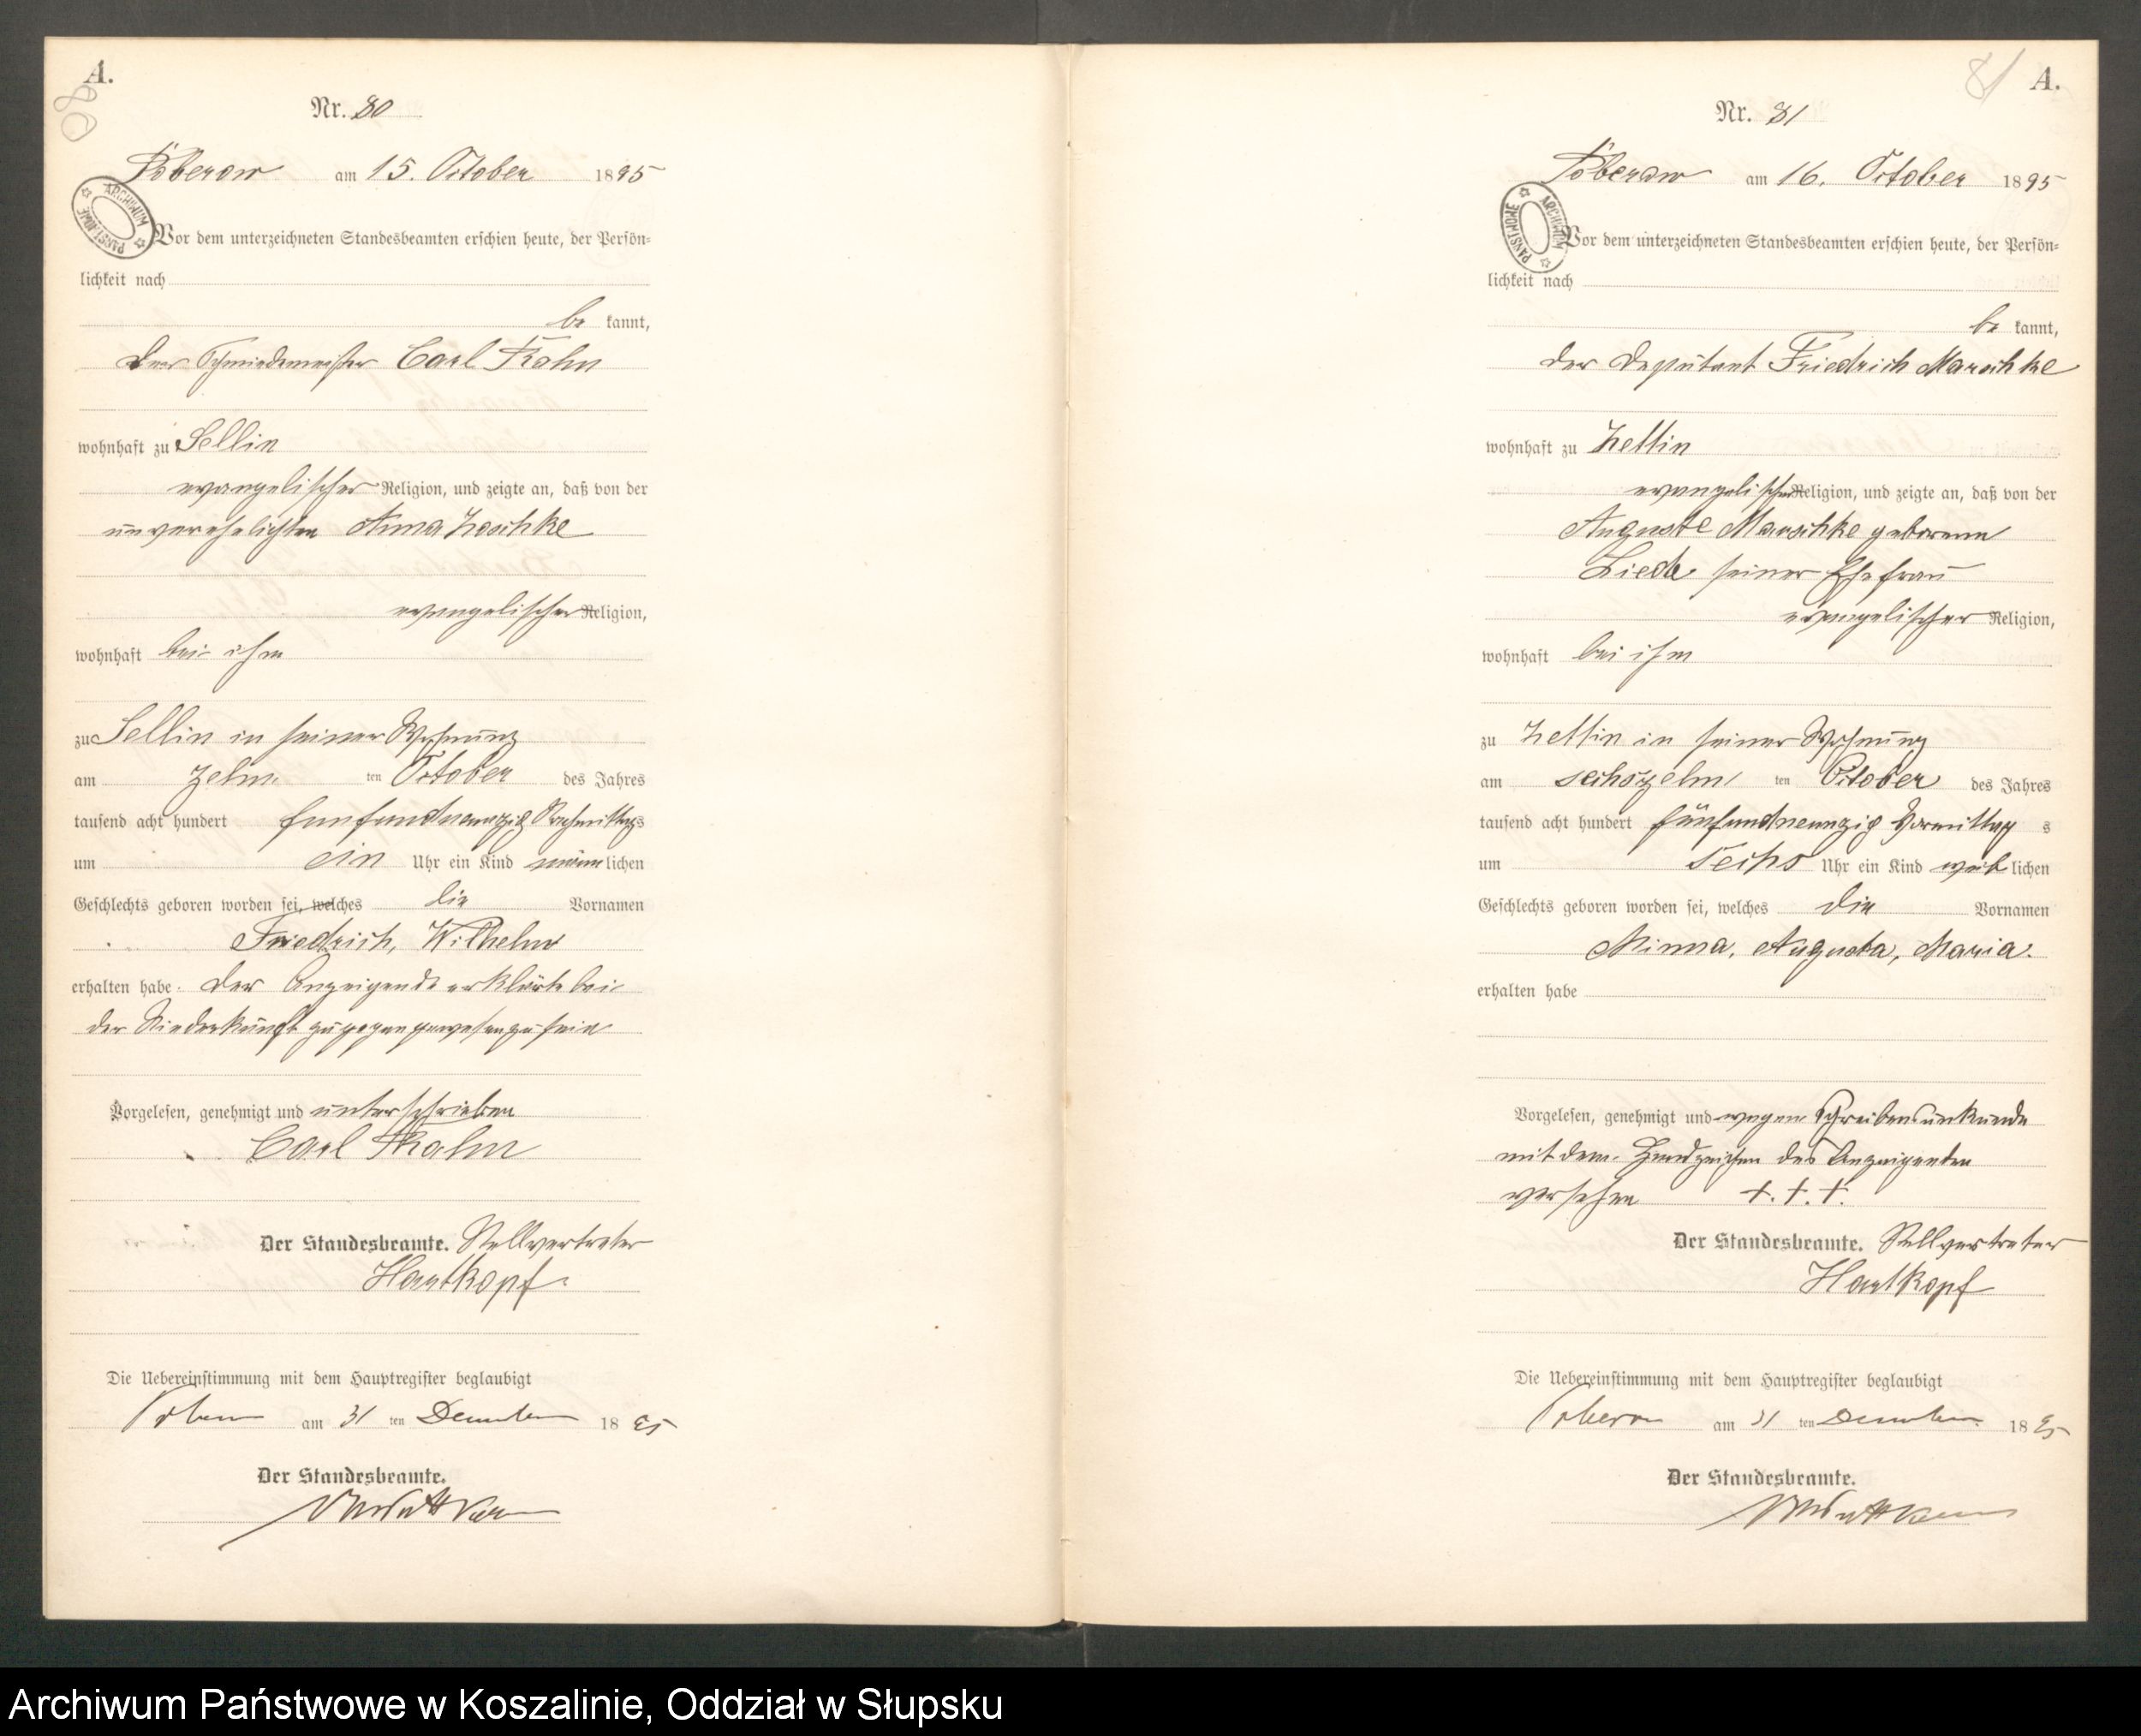 A.
80
Nr. 80
Poberow am 15. October 1895
ARCHIWUM PAŃSTWOWE
Vor dem unterzeichneten Standesbeamten erschien heute, der Persön=
lichkeit nach
be kannt,
der Schmiedemeister Carl Krahn
wohnhaft zu Sellin
evangelischer Religion, und zeigte an, daß von der
unverehelichten Anna Zeschke
evangelischer Religion,
wohnhaft bei ihm
zu Sellin in seiner Wohnung
am zehn ten October des Jahres
tausend acht hundert fünfundneunzig Nachmittags
um ein Uhr ein Kind männlichen
Geschlechts geboren worden sei, welches die Vornamen
Friedrich, Wilhelm
erhalten habe. Der Anzeigende erklärte bei
der Niederkunft zugegen gewesen zu sein
Vorgelesen, genehmigt und unterschrieben
Carl Krahn
Der Standesbeamte. Stellvertreter
Hartkopf.
Die Uebereinstimmung mit dem Hauptregister beglaubigt
Poberow am 31 ten December 1895
Der Standesbeamte.
81
A.
Nr. 81
Poberow am 16. October 1895
ARCHIWUM PAŃSTWOWE
Vor dem unterzeichneten Standesbeamten erschien heute, der Persön=
lichkeit nach
be kannt,
der Deputant Friedrich Marschke
wohnhaft zu Zettin
evangelischer Religion, und zeigte an, daß von der
Auguste Marschke geborene
Liede seiner Ehefrau
evangelischer Religion,
wohnhaft bei ihm
zu Zettin in seiner Wohnung
am sechszehn ten October des Jahres
tausend acht hundert fünfundneunzig Vormittag s
um sechs Uhr ein Kind weiblichen
Geschlechts geboren worden sei, welches die Vornamen
Minna, Augusta, Maria.
erhalten habe
Vorgelesen, genehmigt und wegen Schreibensunkunde
mit dem Handzeichen des Anzeigenden
versehen +.+.+.
Der Standesbeamte. Stellvertreter
Hartkopf
Die Uebereinstimmung mit dem Hauptregister beglaubigt
Poberow am 31 ten December 1895
Der Standesbeamte.
Archiwum Państwowe w Koszalinie, Oddział w Słupsku